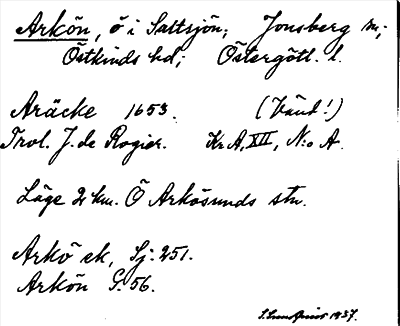 Arkön, ö i Saltsjön; Jonsberg sn;
Östkinds hd; Östergötl. l.
Aräcke 1653. (Vänd!)
Trol. J. de Rogier. Kr A, XII, N:o A.
Läge 2 km. Ö Arkösunds stn.
Arkö ek, Sj. 251.
Arkön G. 56.
S. Lundqvist 1937.